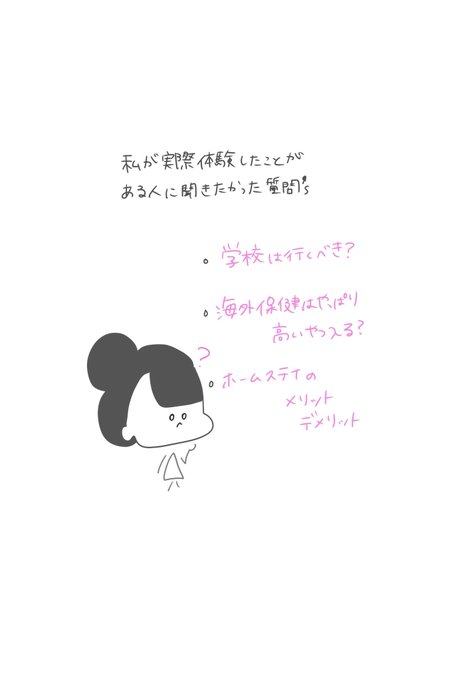 私が実際体験したことが
ある人に聞きたかった質問's
。学校は行くべき?
。海外保健はやっぱり
高いやつ入る?
?
。ホームステイの
メリット
デメリット